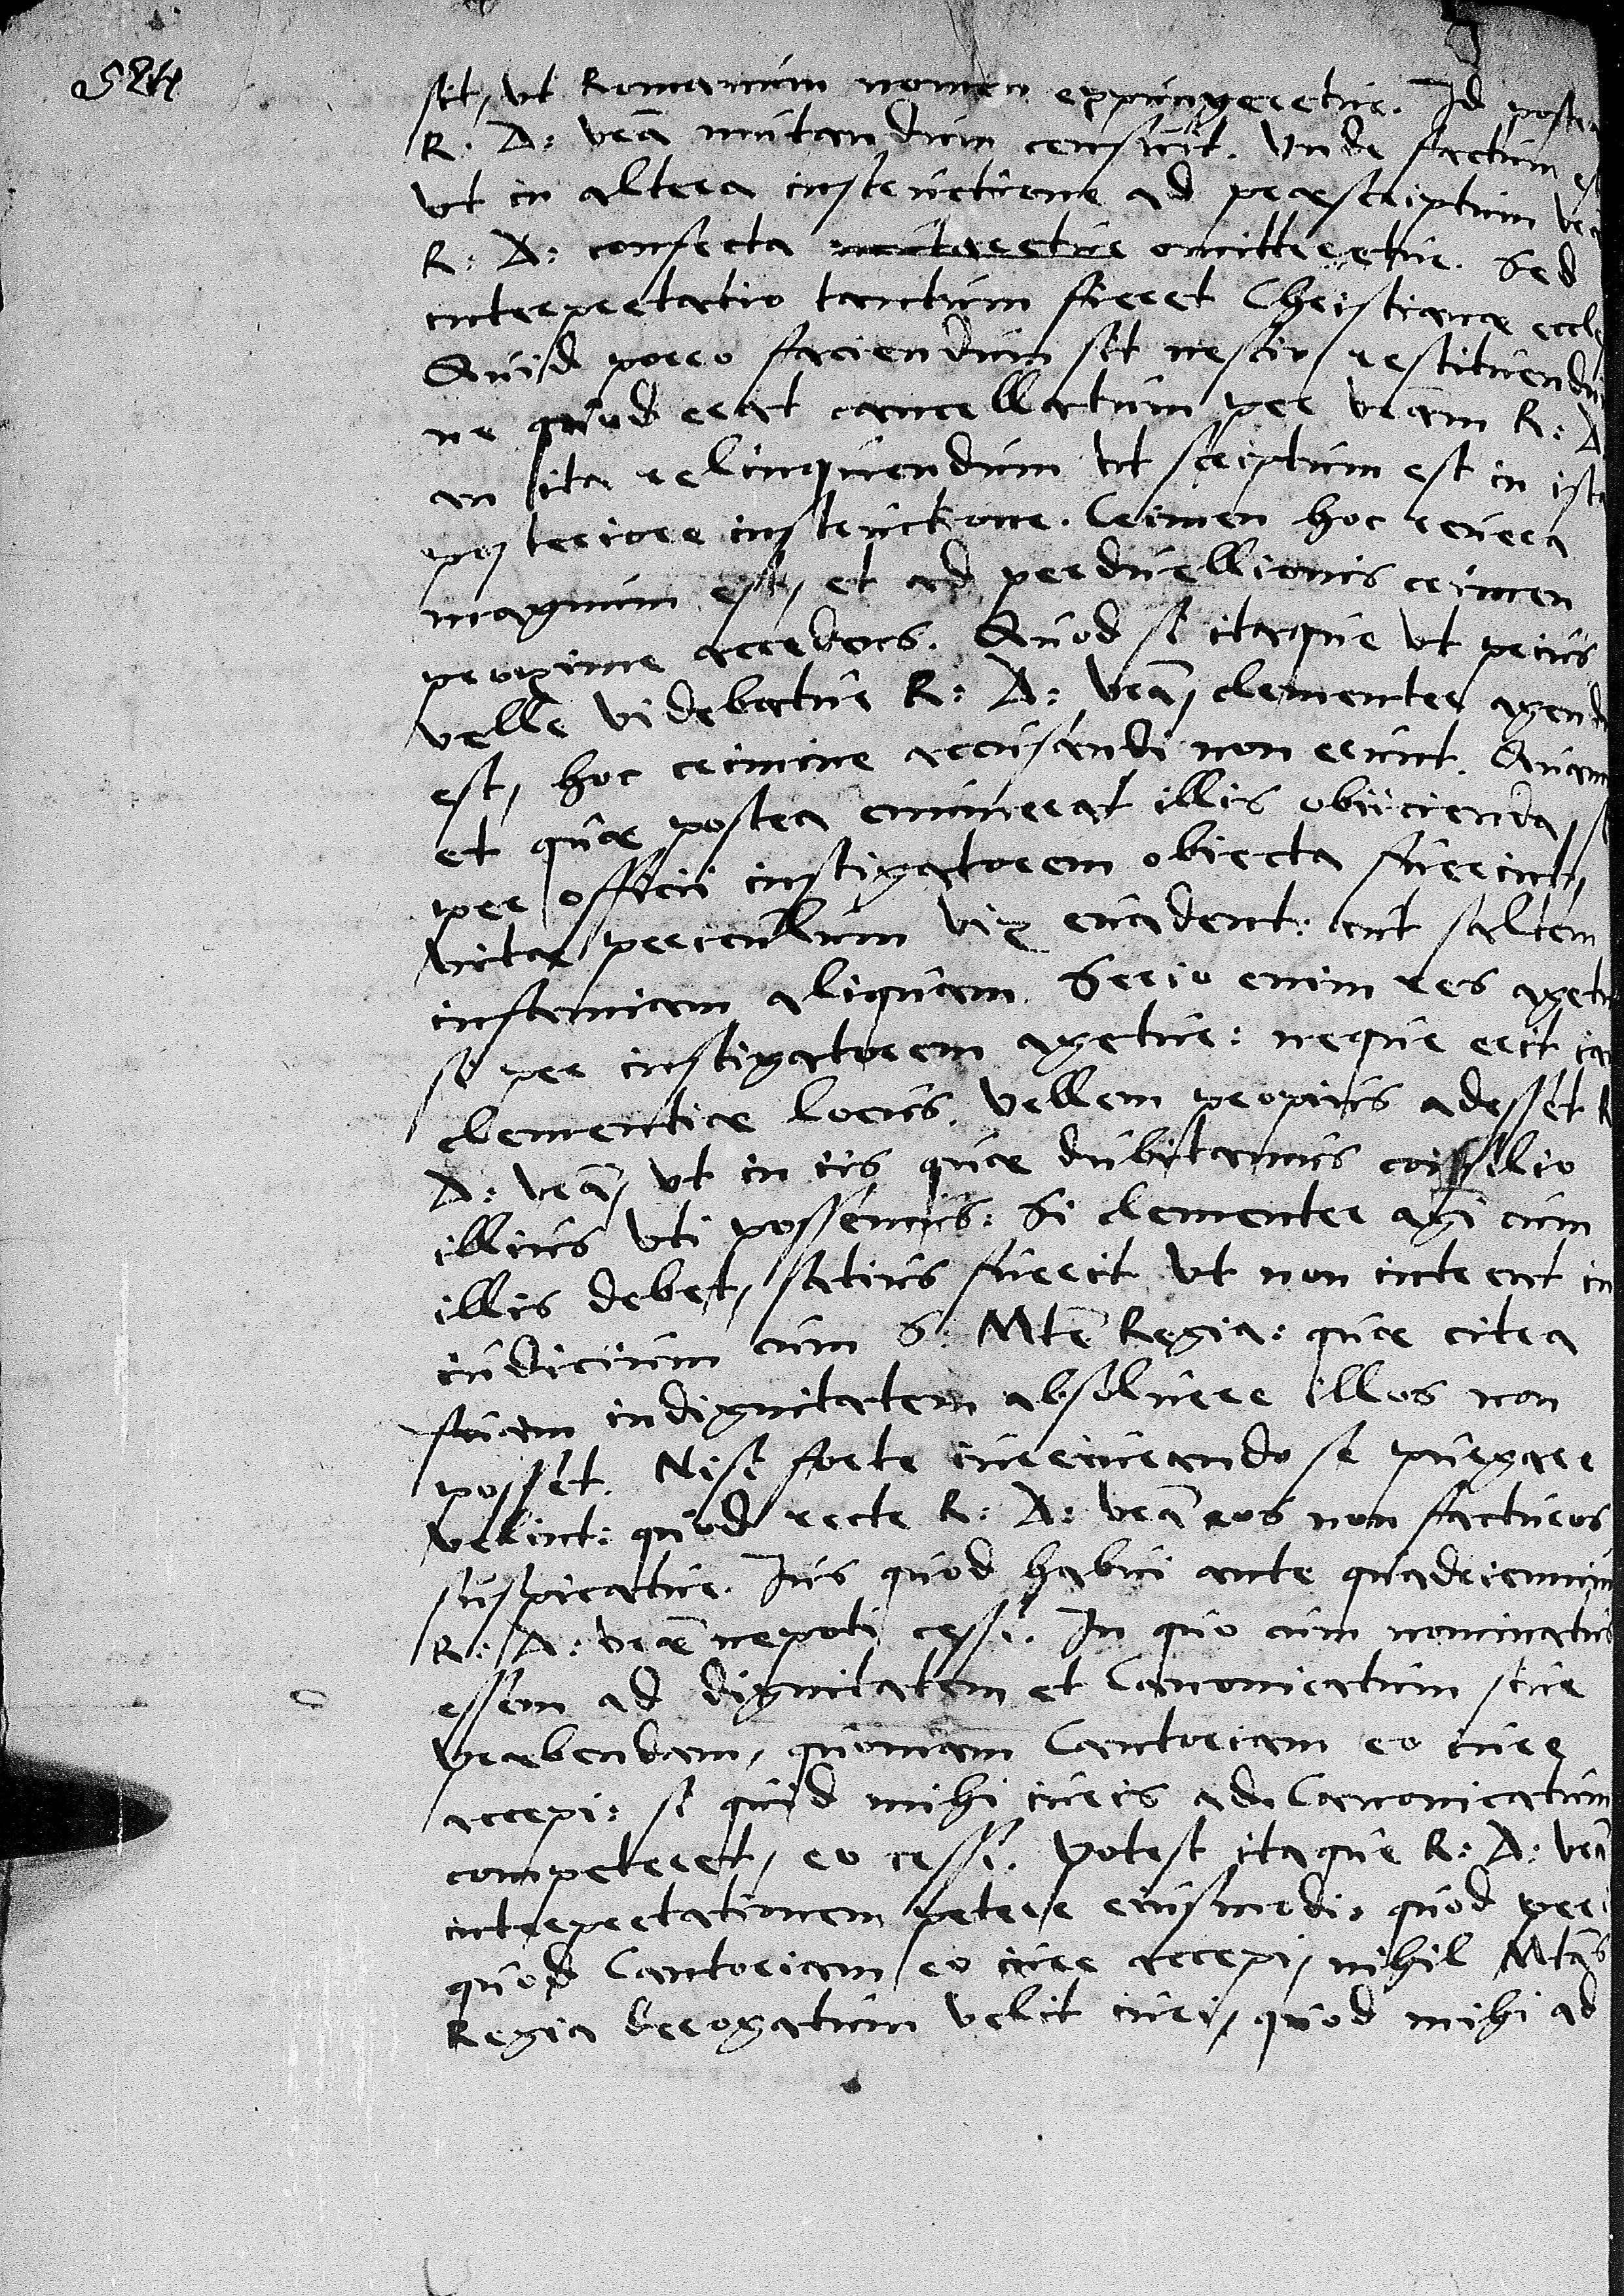 584
sit, ut Romanum nomen expungeretur. Id postea
R. D: vrã mutandum censuit. Unde factum est
ut in altera instructione ad praescriptum vrae
R: D: confecta omitteretur. Sed
interpretatio tantum fieret Christianae eccle
Quid porro faciendum sit nescio, restituendum
ne quod erat cancellatum per vram R: D
an ita relinquendum ut scriptum est in ista
posteriore instructione. Crimen hoc revera
magnum est, et ad perduellionis crimen
proxime accedens. Quod si itaque ut prius
velle videbatur R: D: vrã, clementer agendum
est, hoc crimine accusandi non erunt. Quam
et quae postea enumerat illis obiicienda, si
per officii instigatorem obiecta fuerint,
vitae periculum vix evadent: aut saltem
infamiam aliquam. Serio enim res agetur
si per instigatorem agetur: neque erit iam
clementiae locus. Vellem propius adesset R
D: vrã, ut in iis quae dubitamus consilio
illius uti possemus: Si clementer agi cum
illis debet, satius fuerit ut non intrent in
iudicium cum S: Mtẽ Regia: quae citra
suam indignitatem absolvere illos non
posset. Nisi forte iureiurando se purgare
velint: quod recte R: D: vrã eos non facturos
suspicatur. Ius quod habui ante quadriennium
R: D: vrẽ nepoti cessi. In quo cum nominatus
essem ad dignitatem et Canonicatum sive
praebendam, quoniam Cantoriam eo iure
accepi: si quid mihi iuris ad Canonicatum
competeret, eo cessi. Potest itaque R: D: vrã
interpretationem petere eiusmodi, quod per
quod Cantoriam eo iure accepi, nihil Mtãs
Regia derogatum velit iuri, quod mihi ad